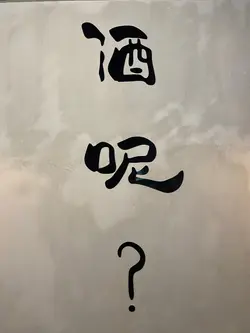 酒呢?